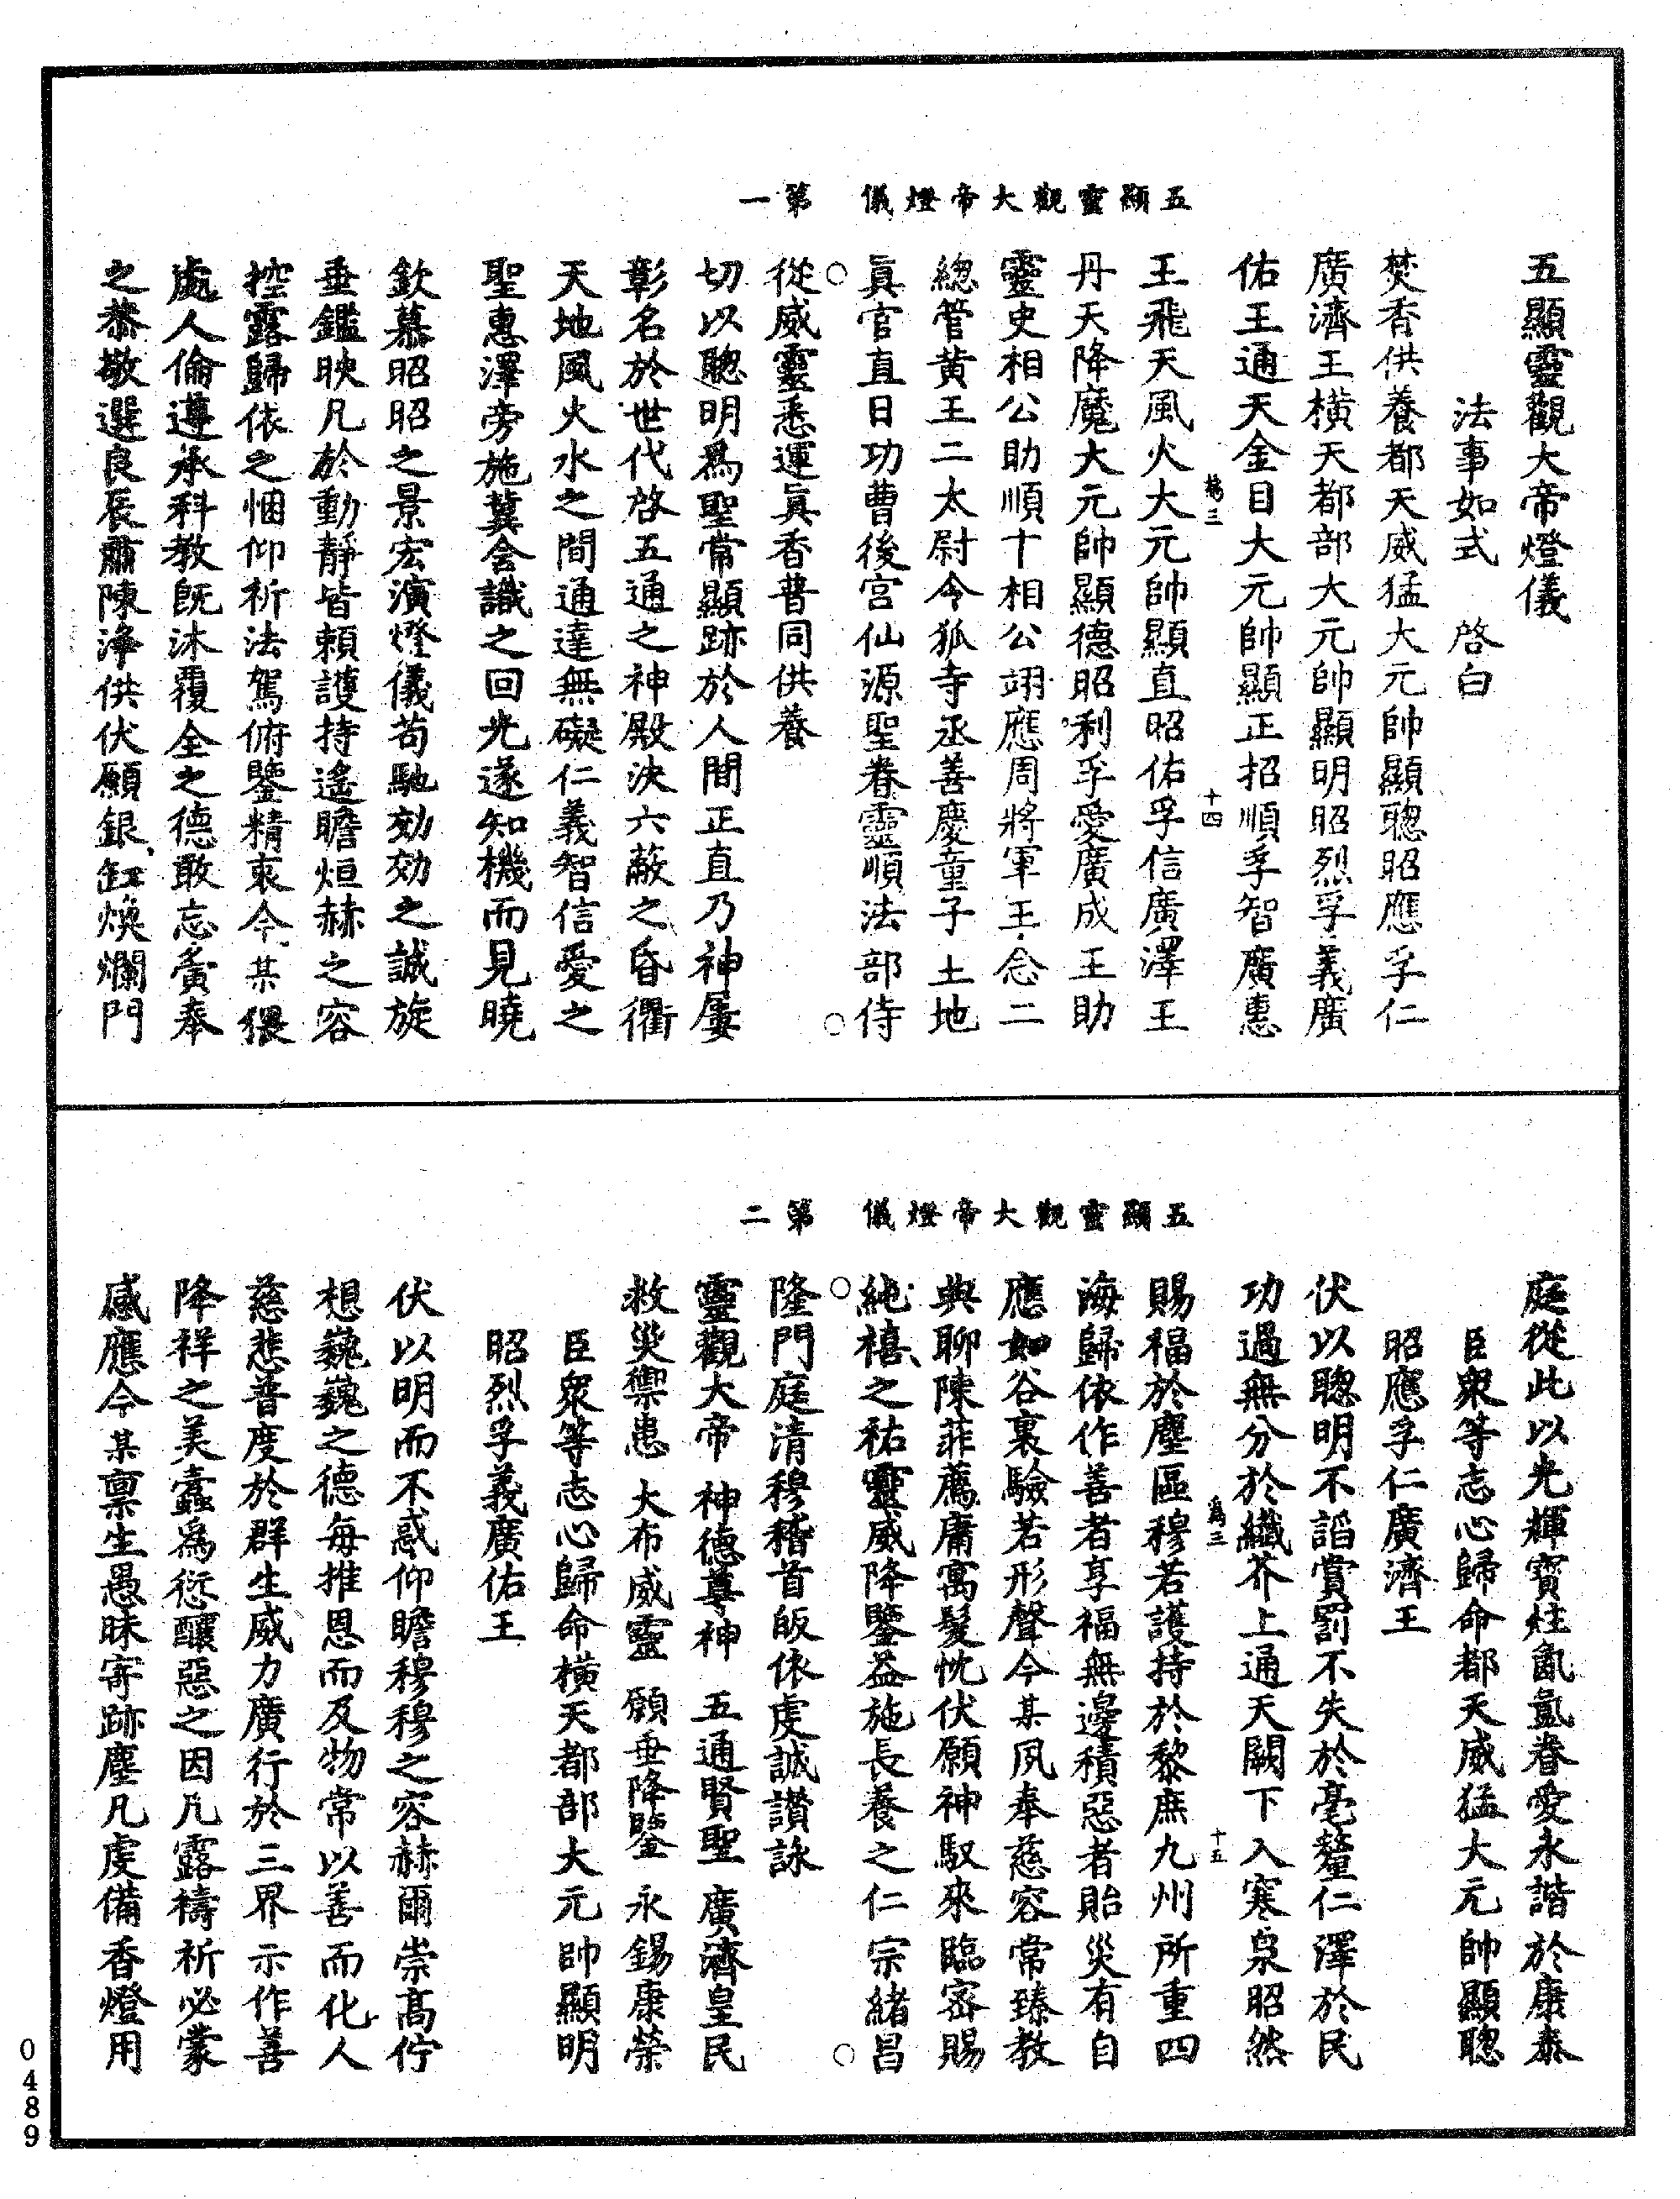 五顯靈觀大帝燈儀　第一
五顯靈觀大帝燈儀
法事如式　啓白
焚香供養都天威猛大元帥顯聰昭應孚仁
廣濟王橫天都部大元帥顯明昭烈孚義廣
佑王通天金目大元帥顯正招順孚智廣惠
王飛天風火大元帥顯直昭佑孚信廣澤王
丹天降魔大元帥顯德昭利孚愛廣成王助
靈史相公助順十相公翊應周將軍王念二
總管黃王二太尉令狐寺丞善慶童子土地
眞官直日功曹後宮仙源聖眷靈順法部侍
從威靈悉運眞香普同供養
切以聰明爲聖常顯跡於人間正直乃神屢
彰名於世代啓五通之神殿決六蔽之昏衢
天地風火水之間通達無礙仁義智信愛之
聖惠澤旁施冀含識之回光遂知機而見曉
欽慕昭昭之景宏演燈儀苟馳効効之誠旋
垂鑑映凡於動靜皆賴護持遙瞻烜赫之容
控露歸依之悃仰祈法駕俯鑒精衷今某猥
處人倫遵承科教旣沐覆全之德敢忘賫奉
之恭敬選良辰肅陳淨供伏願銀缸煥爛門
十四
五顯靈觀大帝燈儀　第二
庭從此以光輝寳炷氤氳眷愛永諧於康泰
臣衆等志心歸命都天威猛大元帥顯聰
昭應孚仁廣濟王
伏以聰明不謟賞罰不失於毫釐仁澤於民
功過無分於纖芥上通天闕下入寒泉昭然
賜福於塵區穆若護持於黎庶九州所重四
海歸依作善者享福無邊積惡者貽災有自
應如谷裏驗若形聲今某夙奉慈容常臻教
典聊陳菲薦庸寓髮忱伏願神馭來臨密賜
純禧之祐靈威降鑒益施長養之仁宗緒昌
隆門庭清穆稽首皈依虔誠讃詠
靈觀大帝　神德尊神　五通賢聖　廣濟皇民
救災禦患　大布威靈　願垂降鑒　永錫康榮
臣衆等志心歸命橫天都部大元帥顯明
昭烈孚義廣佑王
伏以明而不惑仰瞻穆穆之容赫爾崇高佇
想巍巍之德每推恩而及物常以善而化人
慈悲普度於群生威力廣行於三界示作善
降祥之美蠲爲愆釀惡之因凡露禱祈必蒙
感應今某禀生愚昧寄跡塵凡虔備香燈用
十五
0489